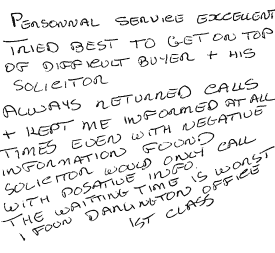 PERSONNAL SERVICE EXCELLENT
TRIED BEST TO GET ON TOP
OF DIFFICULT BUYER + HIS
SOLICITOR
ALWAYS RETURNED CALLS
+ KEPT ME INFORMED AT ALL
TIMES EVEN WITH NEGATIVE
INFORMATION FOUND
SOLICITOR WOULD ONLY CALL
WITH POSATIVE INFO.
THE WAITING TIME IS WORST
I FOUN DARLINGTON OFFICE
1ST CLASS